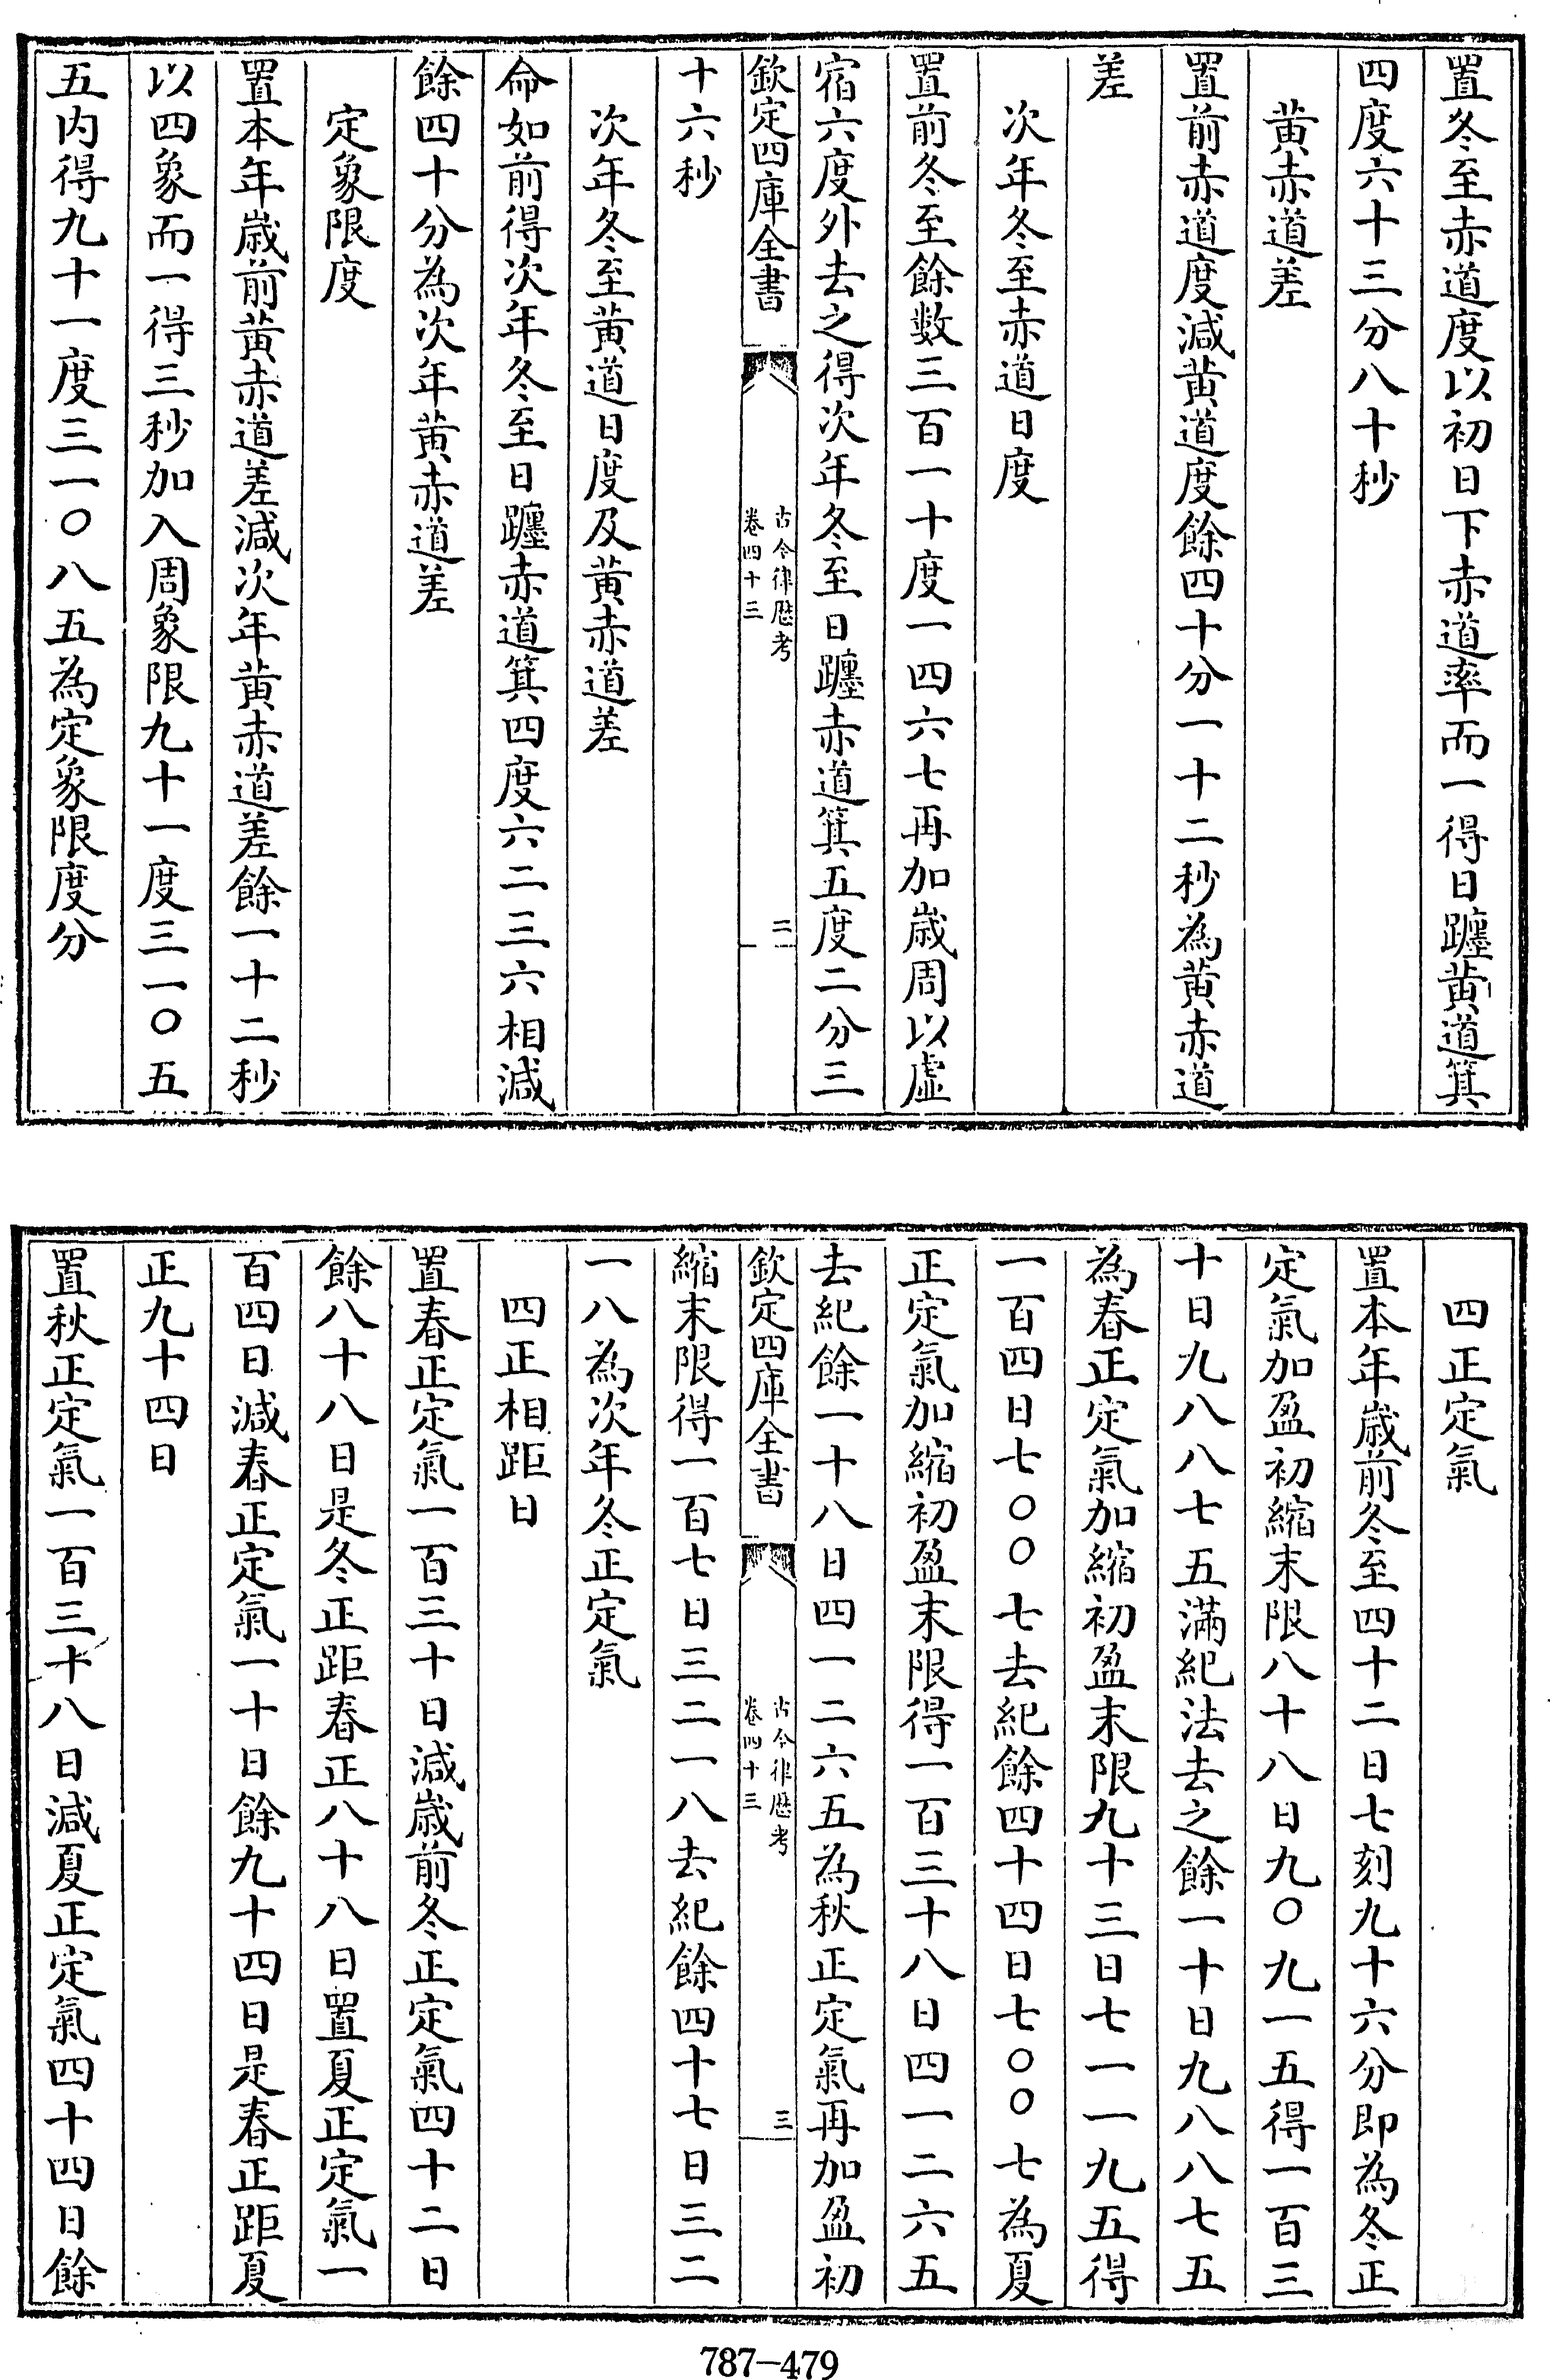 置冬至赤道度以初日下赤道率而一得日躔黄道箕
四度六十三分八十秒
黄赤道差
置前赤道度減黄道度餘四十分一十二秒為黄赤道
差
次年冬至赤道日度
置前冬至餘數三百一十度一四六七再加歳周以虛
宿六度外去之得次年冬至日躔赤道箕五度二分三
欽定四庫全書
古今律歴考
卷四十三
二
十六秒
次年冬至黄道日度及黄赤道差
命如前得次年冬至日躔赤道箕四度六二三六相減
餘四十分為次年黄赤道差
定象限度
置本年歳前黄赤道差減次年黄赤道差餘一十二秒
以四象而一得三秒加入周象限九十一度三一〇五
五内得九十一度三一〇八五為定象限度分
四正定氣
置本年歳前冬至四十二日七刻九十六分即為冬正
定氣加盈初縮末限八十八日九〇九一五得一百三
十日九八八七五滿紀法去之餘一十日九八八七五
為春正定氣加縮初盈末限九十三日七一一九五得
一百四日七〇〇七去紀餘四十四日七〇〇七為夏
正定氣加縮初盈末限得一百三十八日四一二六五
去紀餘一十八日四一二六五為秋正定氣再加盈初
欽定四庫全書
古今律歴考
卷四十三
三
縮末限得一百七日三二一八去紀餘四十七日三二
一八為次年冬正定氣
四正相距日
置春正定氣一百三十日減歳前冬正定氣四十二日
餘八十八日是冬正距春正八十八日置夏正定氣一
百四日減春正定氣一十日餘九十四日是春正距夏
正九十四日
置秋正定氣一百三十八日減夏正定氣四十四日餘
787-479